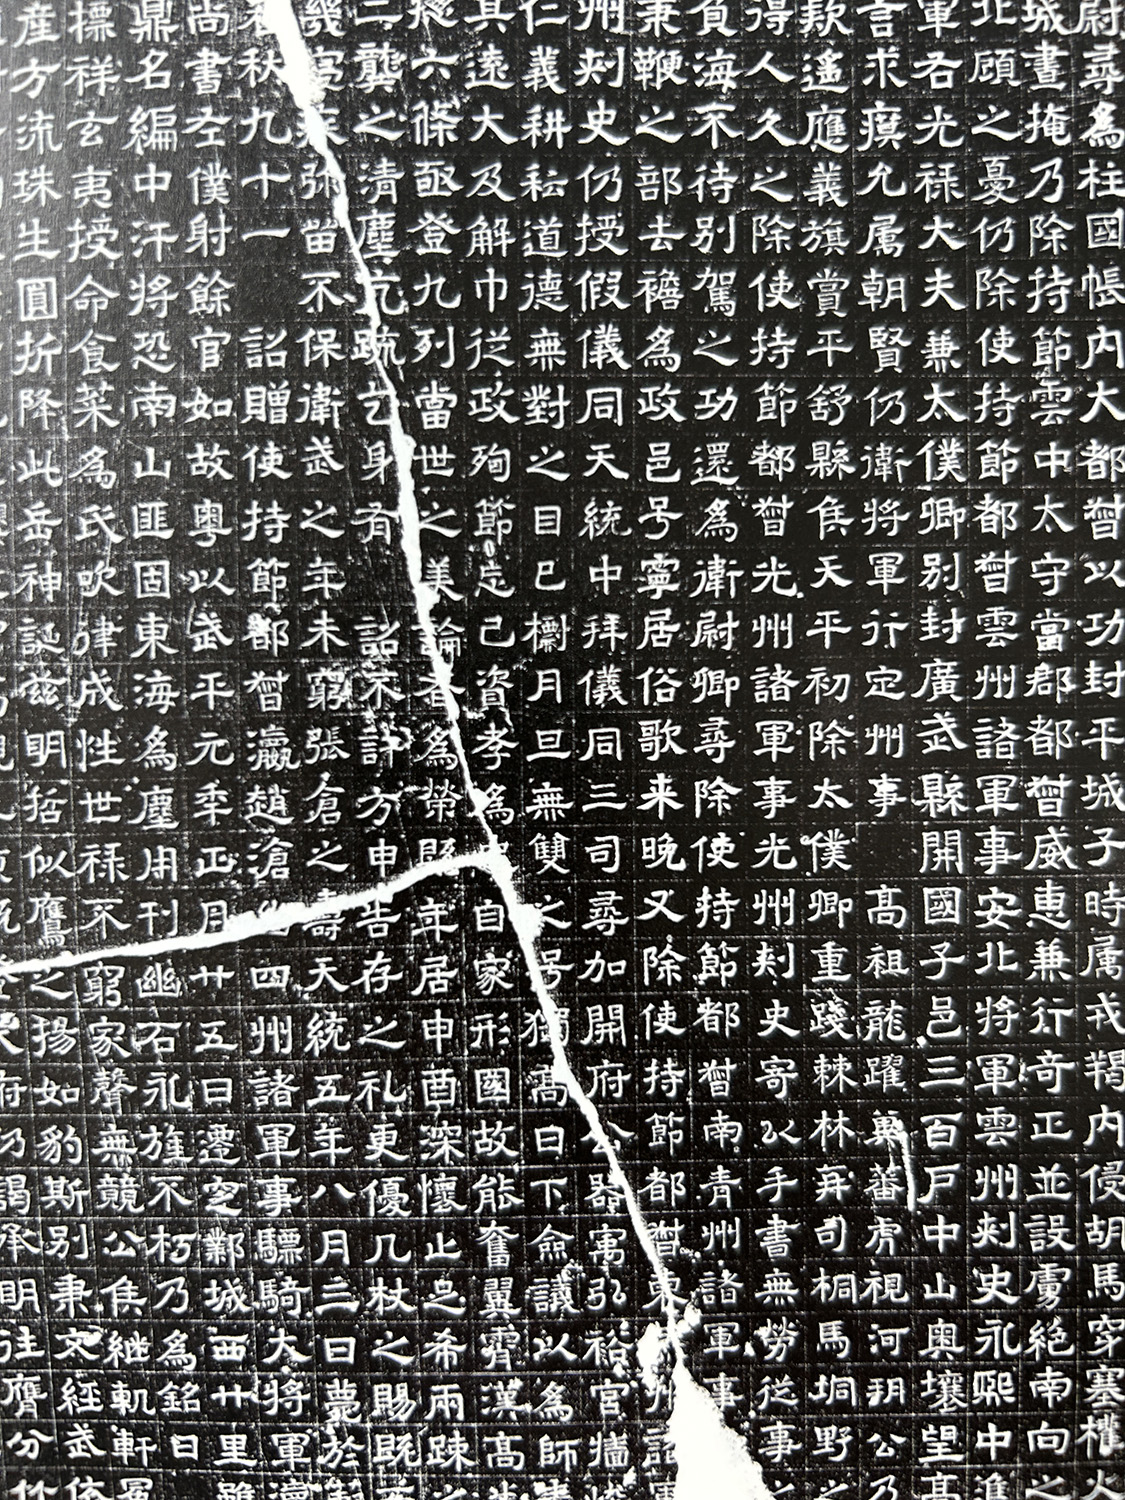 尉尋為柱國帳内大都督以功封平城子時属戎羯内侵胡馬穿塞權火
城晝掩乃除持節雲中太守當郡都督威恵兼行奇正並設虜絶南向之
北顧之憂仍除使持節都督雲州諸軍事安北將軍雲州刾史永熙中進
軍右光禄大夫兼太僕卿别封廣武縣開國子邑三百戸中山奥壤望髙
言求瘼允属朝賢仍衛將軍行定州事 髙祖龍躍興蕃虎視河朔公乃
款遙應義旗賞平舒縣侯天平初除太僕卿重踐棘林再司桐馬坰野之
得人久之除使持節都督光州諸軍事光州刾史寄以手書無勞従事
負海不待别駕之功還為衛尉卿尋除使持節都督南青州諸軍事
秉鞭之部去襜為政邑号寧居俗歌来晚又除使持節都督東州諸
州刾史仍授假儀同天統中拜儀同三司尋加開府公器寓弘裕宮牆峻
仁義耕耘道德無對之目已擲月旦無雙之号獨髙日下僉議以為師表
其遠大及解巾従政殉節忘己資孝為自家形國故能奮翼霄漢髙
六條亟登九列當世之美論者為榮暨年居申酉深懷止足希兩疎之
二龔之清塵亢疏乞身有 詔不許方申告存之礼更優几杖之賜既
幾寢疾弥留不保衛武之年未窮張倉之壽天統五年八月三日薨於
春秋九十一 詔贈使持節都督瀛趙滄幽四州諸軍事驃騎大將軍瀛
尚書左僕射餘官如故粤以武平元年正月廿五日遷窆鄴城西廿里雖
鼎名編中汗將恐南山匪固東海為塵用刊幽石永旌不朽乃為銘曰
標祥玄夷授命食菜為氏吹律成性世禄不窮家聲無競公侯継軌軒冕
産方流珠生圓折降此岳神誕兹明悊似鷹之揚如豹斯别秉文經武
府仍謁承明往膺分竹